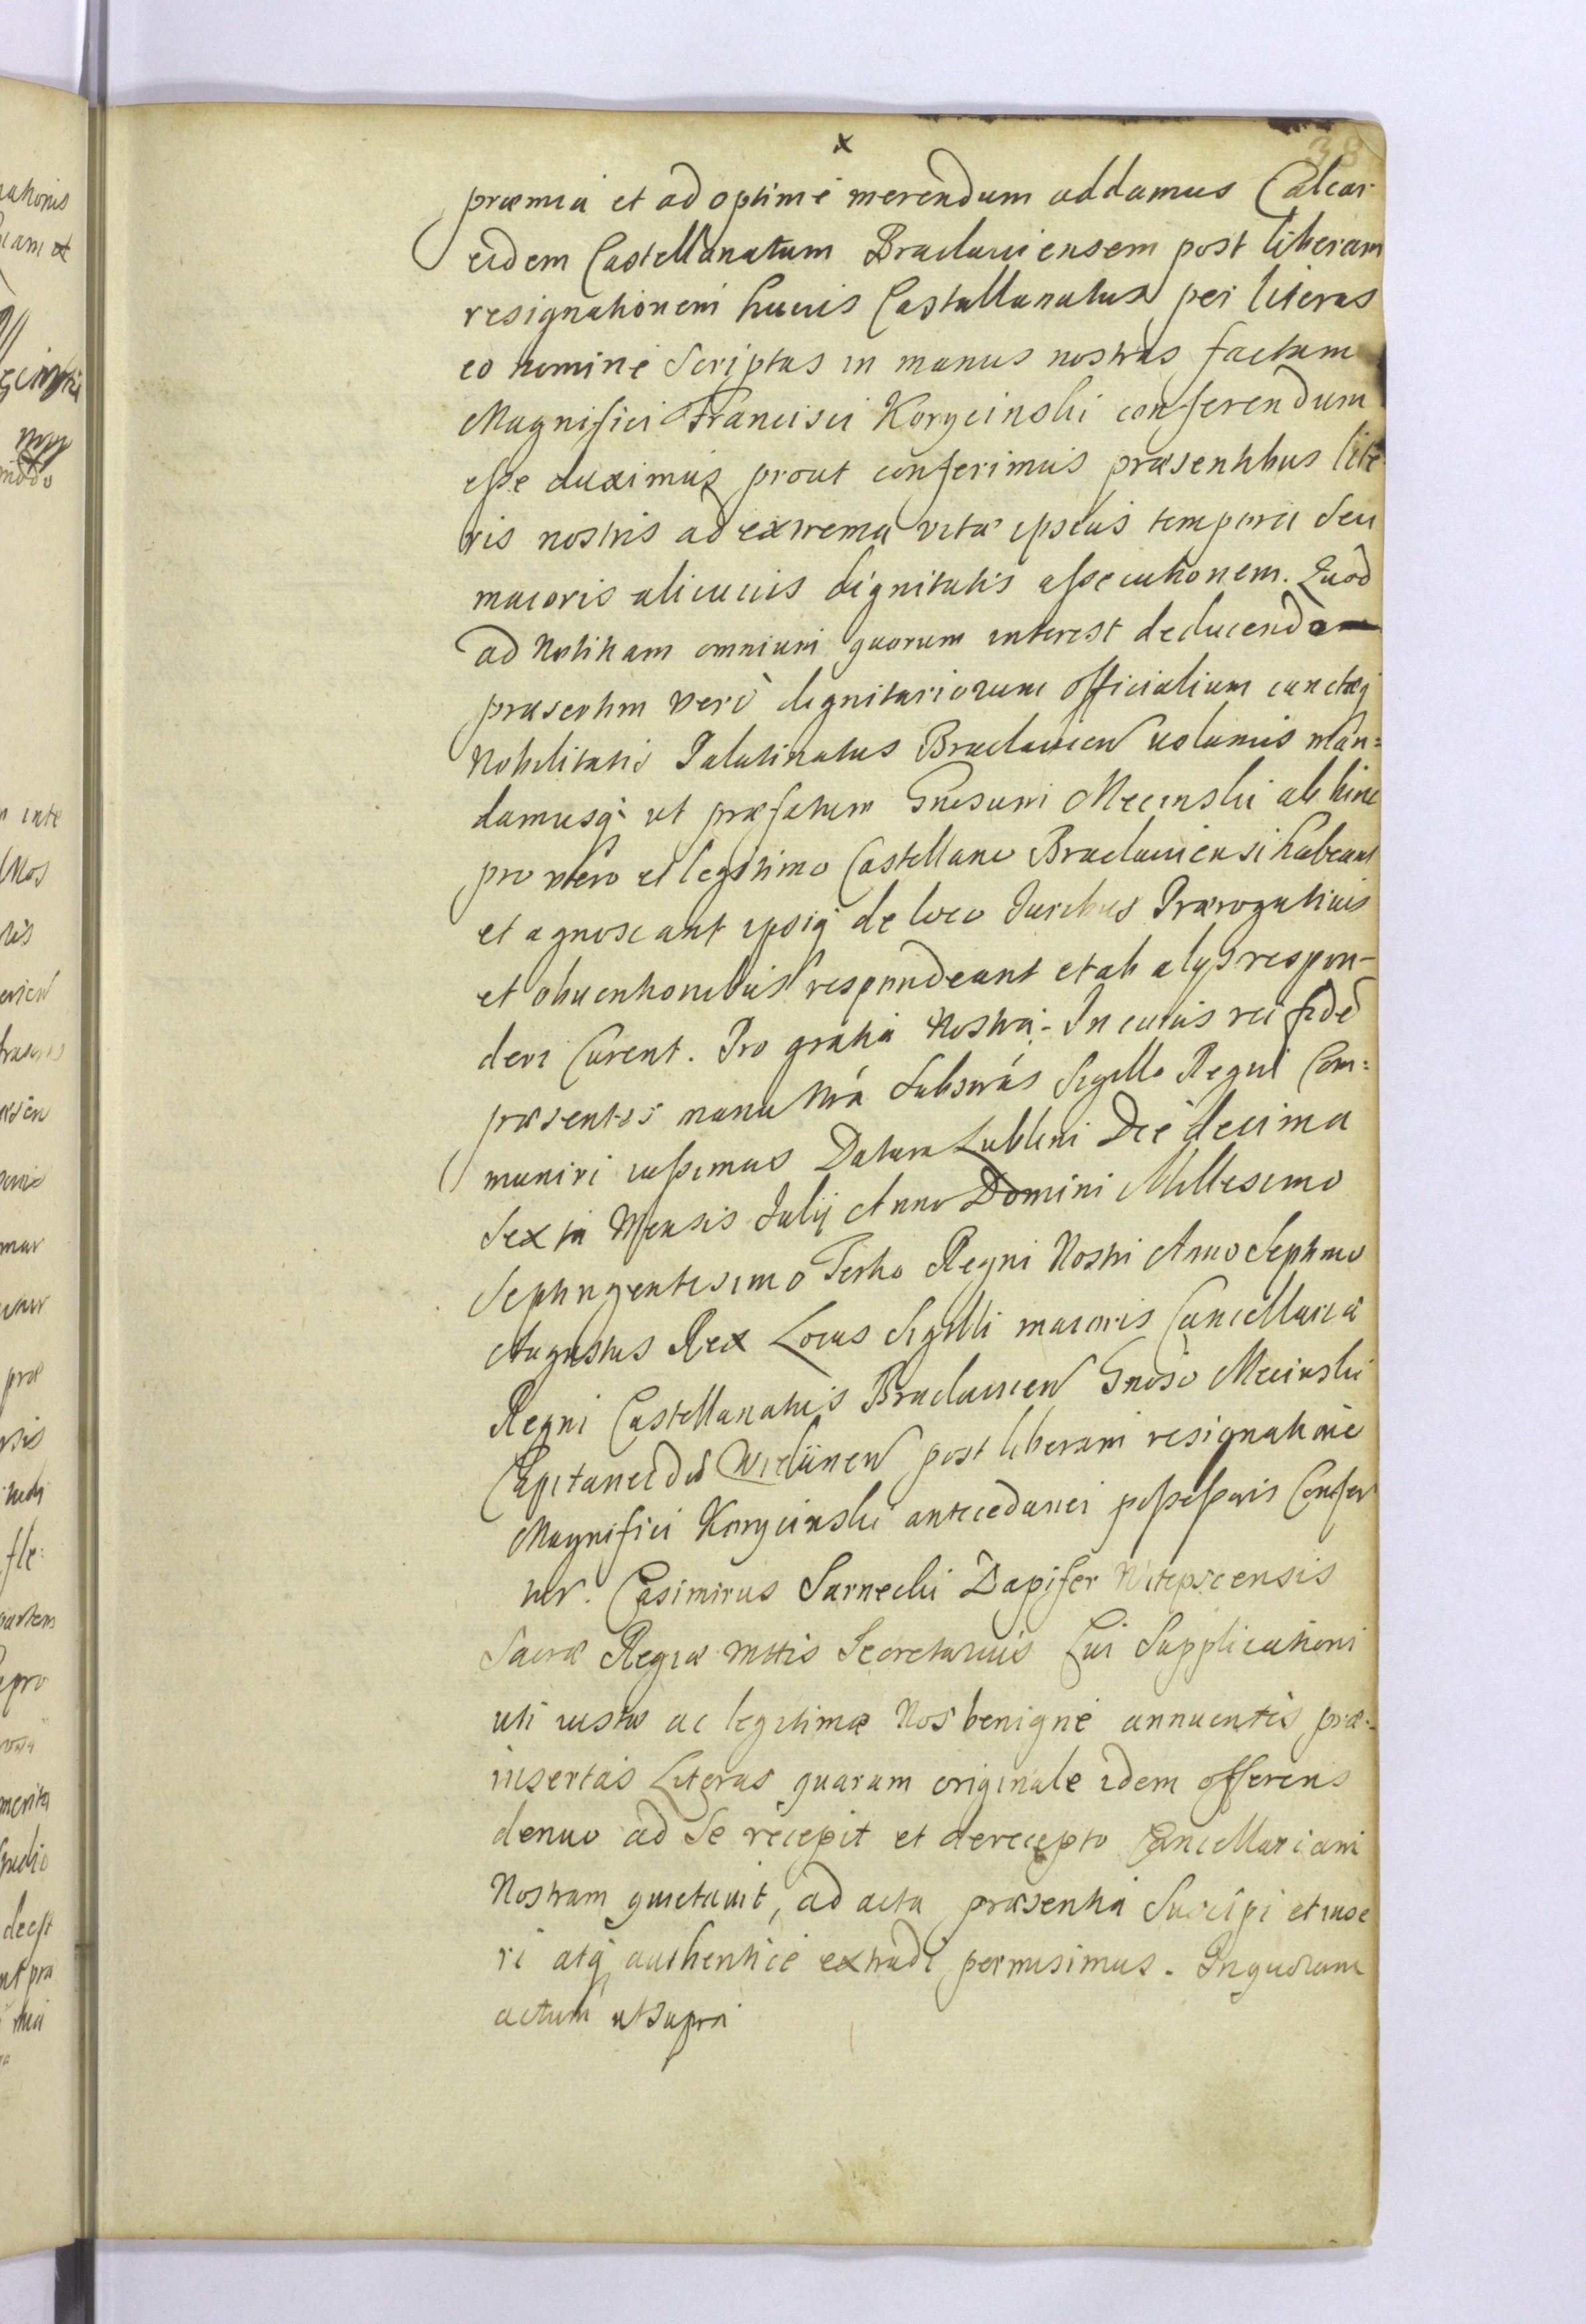 x
38
præmia et ad optimè merendum addamus Calcar
eidem Castellanatum Braclauiensem post liberam
resignationem huius Castellanatus per literas
eo nomine scriptas in manus nostras factam
Magnifici Francisci Korycinski conferendum
esse duximus prout conferimus præsentibus lite
ris nostris ad extrema vitæ ipsius tempora seu
maioris alicuius dignitatis assecutionem. Quod
ad Notitiam omnium quorum interest deducendo
præsertim verò dignitariorum officialium cunctæq
Nobilitatis Palatinatus Braclauien uolumus man=
damusq ut præfatum Gnosum Mecinski ab hinc
pro vero et legitimo Castellano Braclauiensi habeant
et agnoscant ipsiq de loco Iuribus Prærogatiuis
et obuentionibus respondeant et ab alys respon-
deri Curent. Pro gratia Nostra. In cuius rei fidẽ
præsentes manu Nrâ subscrâs Sigillo Regni Com=
muniri iussimus Datum Lublini Die decima
sexta Mensis Julij Anno Domini Millesimo
Septingentesimo Tertio Regni Nostri Anno Septimo
Augustus Rex Locus Sigilli maioris Cancellariæ
Regni Castellanatus Braclauien Gnoso Mecinski
Capitaneo Wieliinen post liberam resignationẽ
Magnifici Korycinski antecedanei possessoris Confer
tur. Casimirus Sarnecki Dapifer Witepscensis
Sacræ Regiæ Mttis Secretarius Cui Supplicationi
uti iustæ ac legitimæ Nos benigne annuentes præ-
insertas Literas quarum originale idem offerens
denuo ad se recepit et de recepto Cancellariam
Nostram quietauit, ad acta præsentia Suscipi et inse
ri atq authenticè extradi permisimus. In quorum
actum ut supra